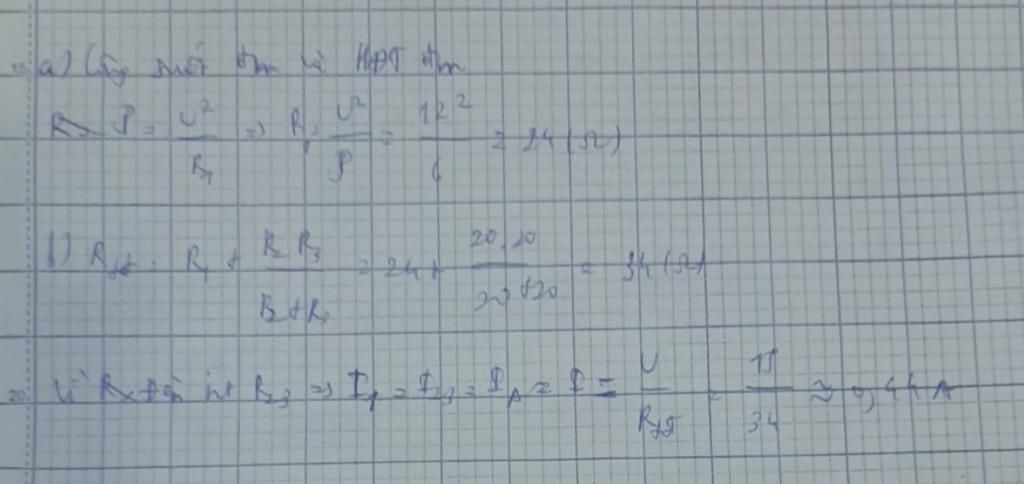 a) Công suất đm và HĐT đm
P = U² / R₁ => R₁ = U² / P = 12² / 6 = 24 (Ω)
b) Rtđ = R₁ + R₂ R₃ / R₂ + R₃ = 24 + 20.20 / 20+20 = 34 (Ω)
Vì Rđèn nt R₂₃ => I₁ = I₂₃ = I_A = I = U / Rtđ = 15 / 34 ≈ 0,44 A